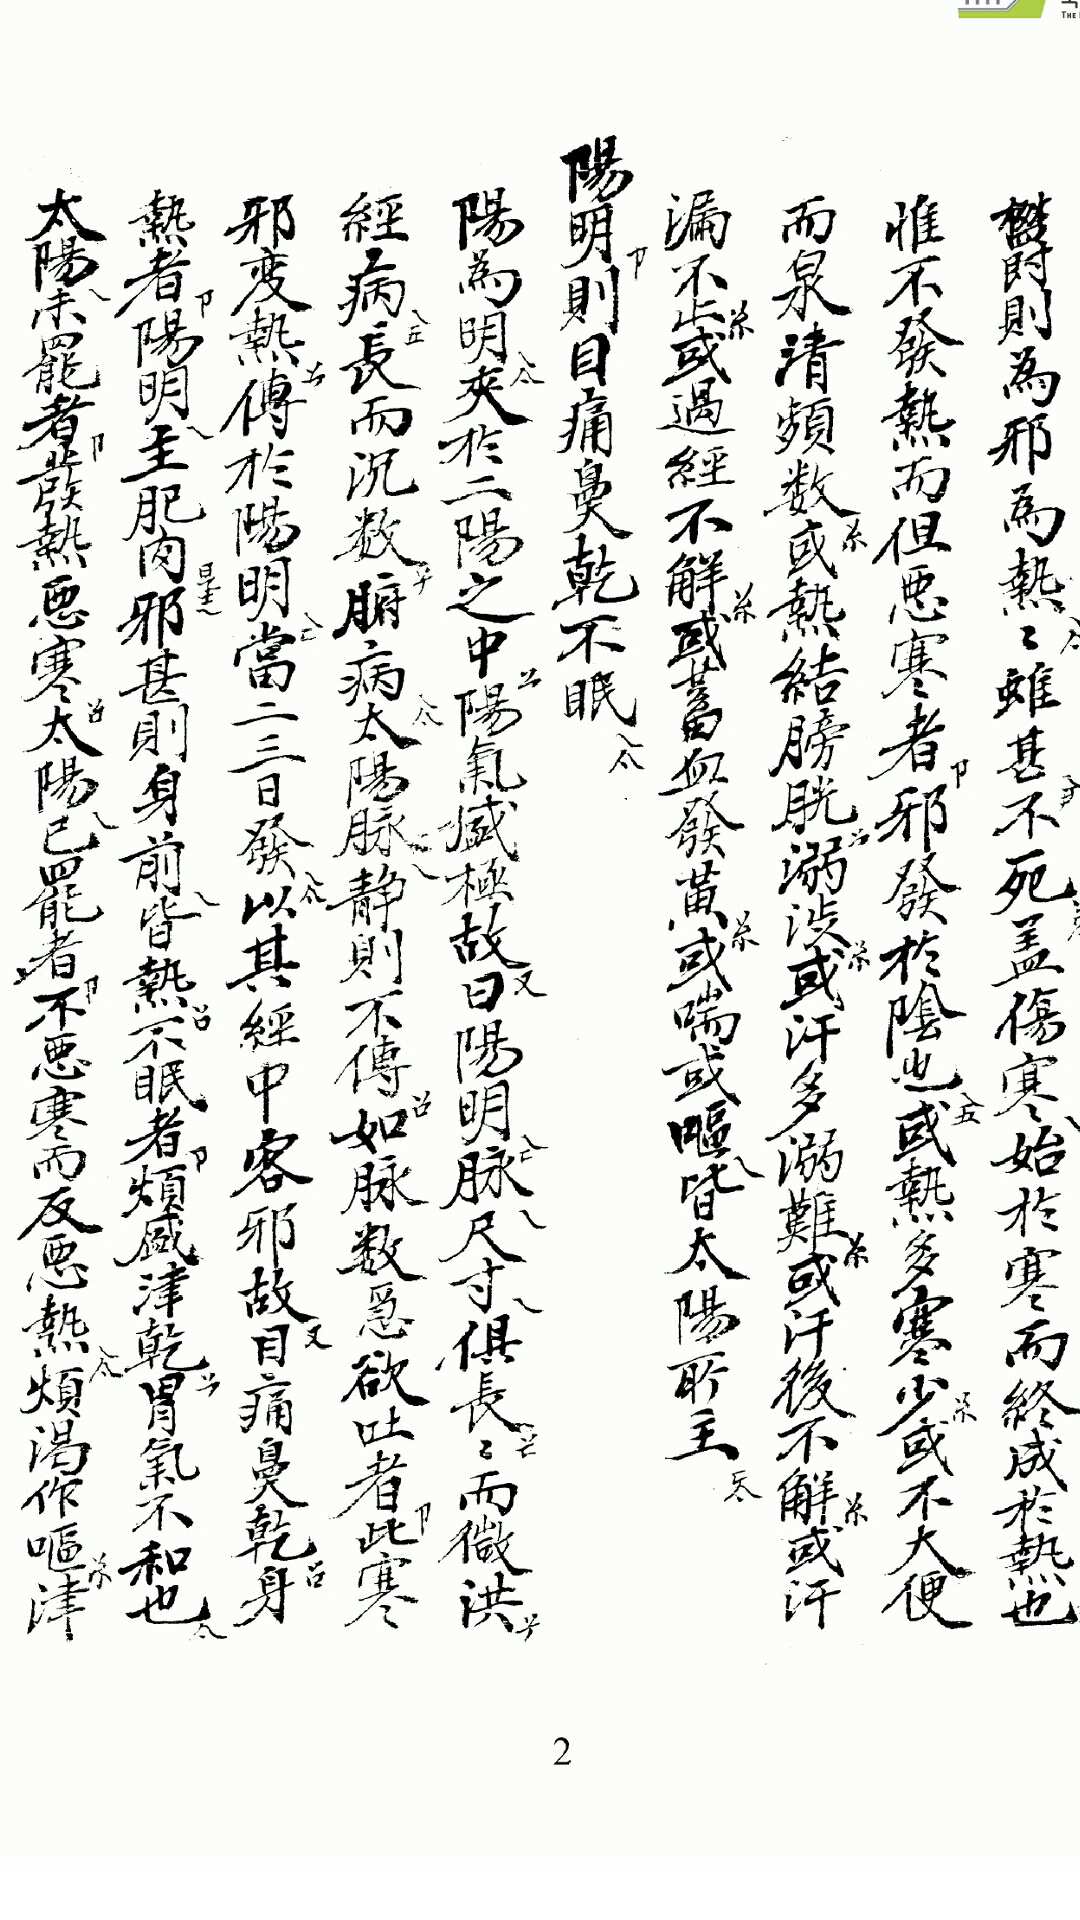 鬱則為邪為熱〻雖甚不死盖傷寒始於寒而終成於熱也
惟不發熱而但悪寒者邪發於陰也或熱多寒少或不大便
而泉清頻数或熱結膀胱溺澁或汗多溺難或汗後不解或汗
漏不止或過經不解或蓄血發黄或喘或嘔皆太陽所主
陽明則目痛鼻乾不眠
陽為明夾於二陽之中陽氣盛極故曰陽明脉尺寸俱長〻而微洪
經病長而沉数腑病太陽脉静則不傳如脉数急欲吐者此寒
邪变熱傳於陽明當二三日發以其經中客邪故目痛鼻乾身
熱者陽明主肥肉邪甚則身前皆熱不眠者煩盛津乾胃氣不和也
太陽未罷者發熱悪寒太陽已罷者不悪寒而反悪熱煩渴作嘔津
2
THE